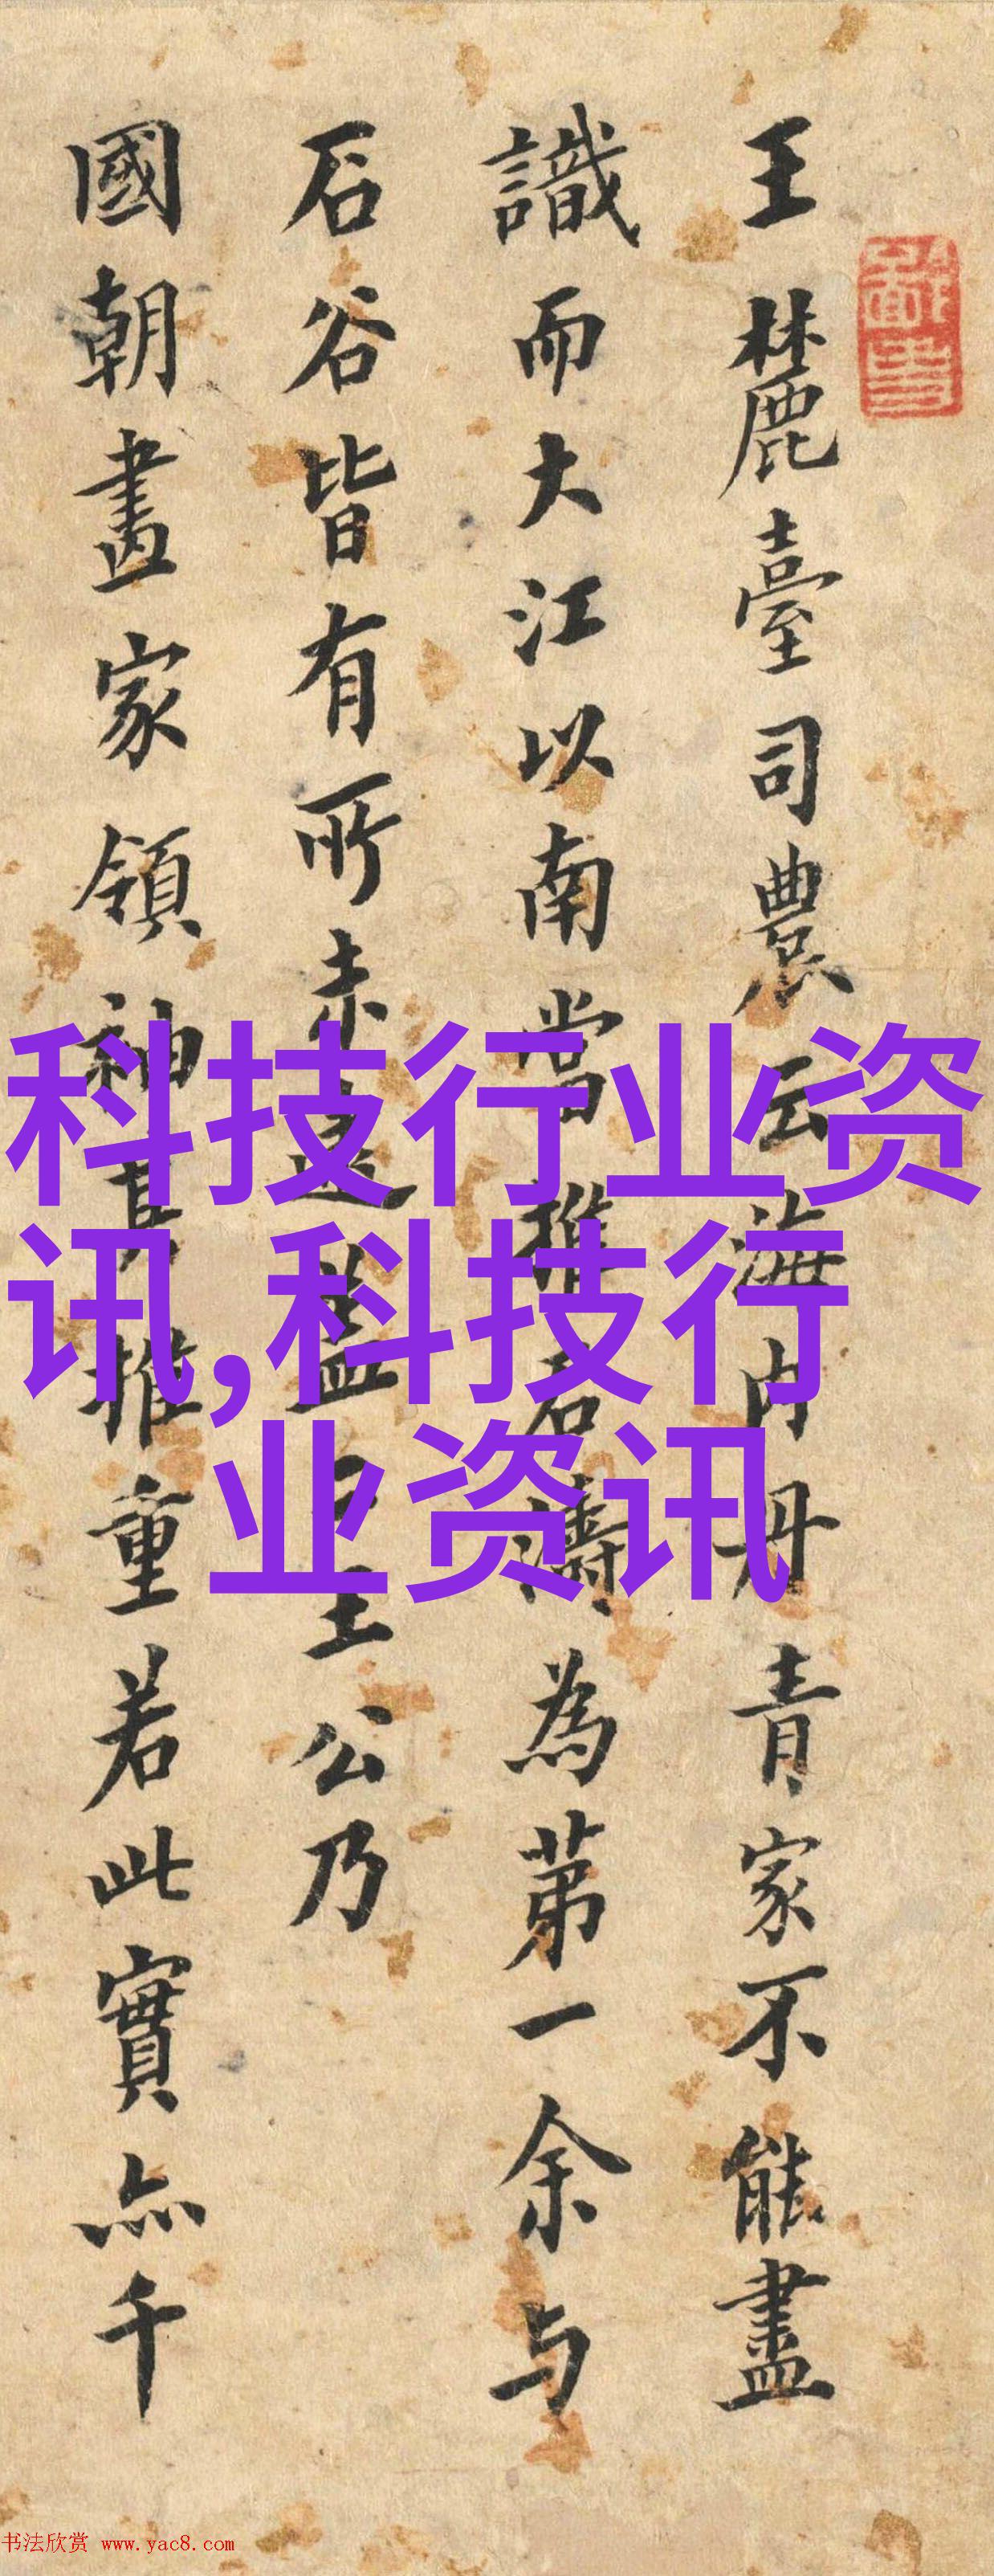 王麓臺司農云海内丹青家不能盡
識而大江以南當推石濤為第一余与
石谷皆有所未逮蓋王公乃
國朝畫家領袖其推重若此實亦千
科技行业资
讯,科技行
业资讯
书法欣赏 www.yac8.com